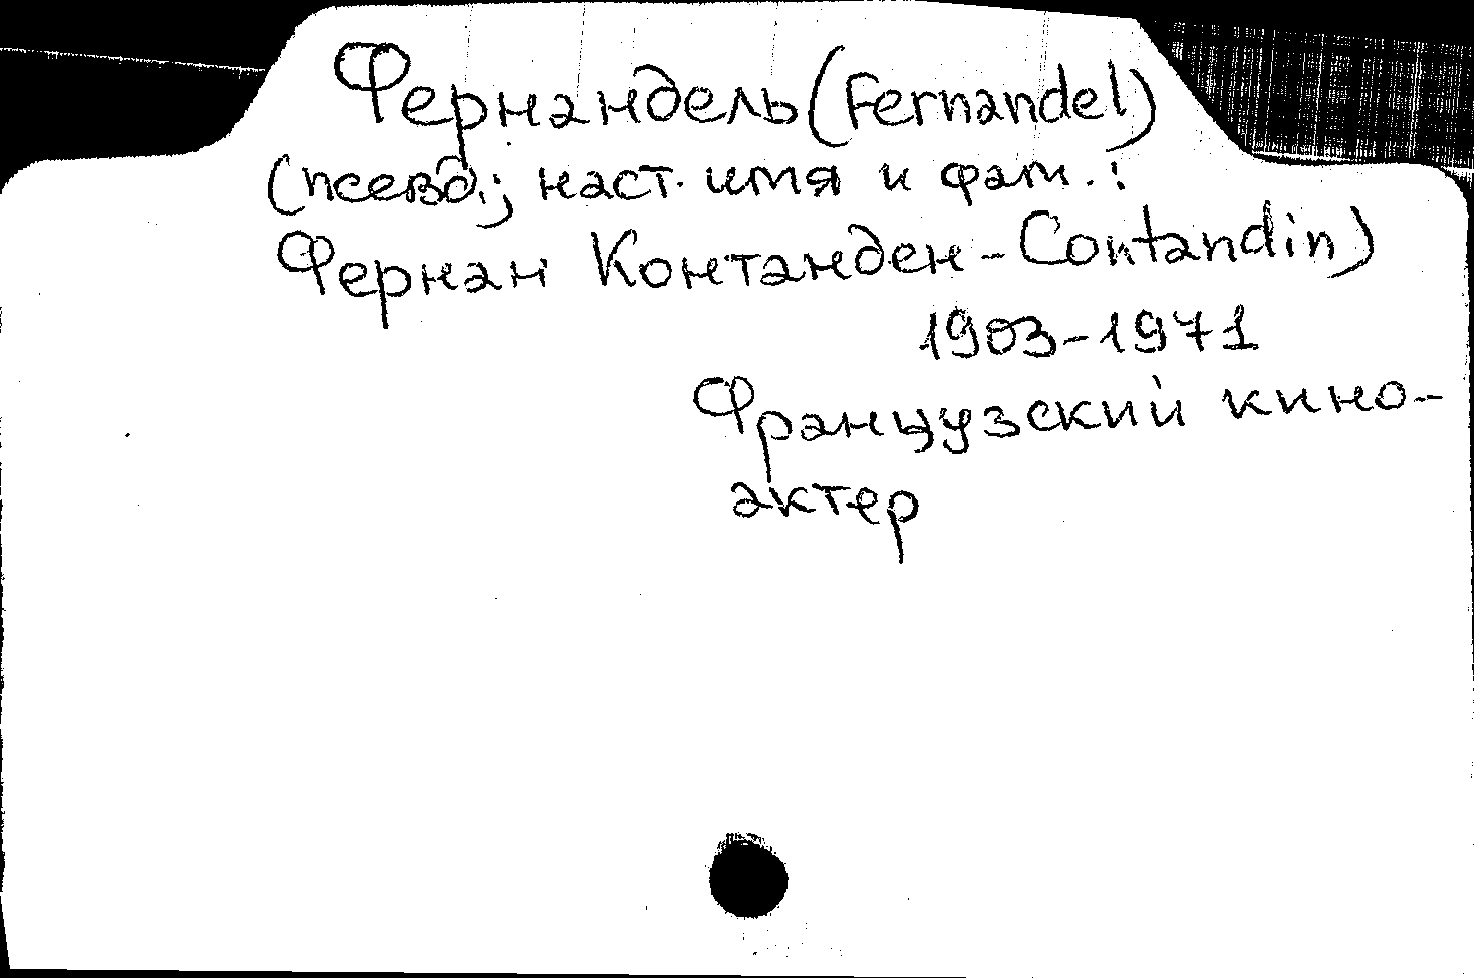 Фернандель (Fernandel)
(псевд.; наст. имя и фам.:
Фернан Контанден - Contandin)
1903-1971
Французский кино-
актер